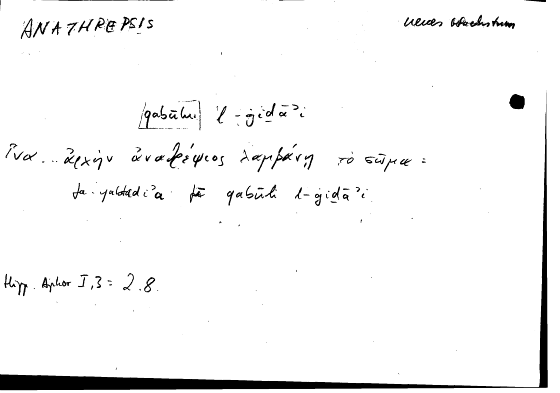 ANATHREPSIS
neues Wachstum
qabūlu l-ġiḏāʾi
ἵνα... ἀρχὴν ἀναθρέψιος λαμβάνῃ τὸ σῶμα =
fa-yabtadiʾa fī qabūli l-ġiḏāʾi
Hipp. Aphor I,3 = 2.8.